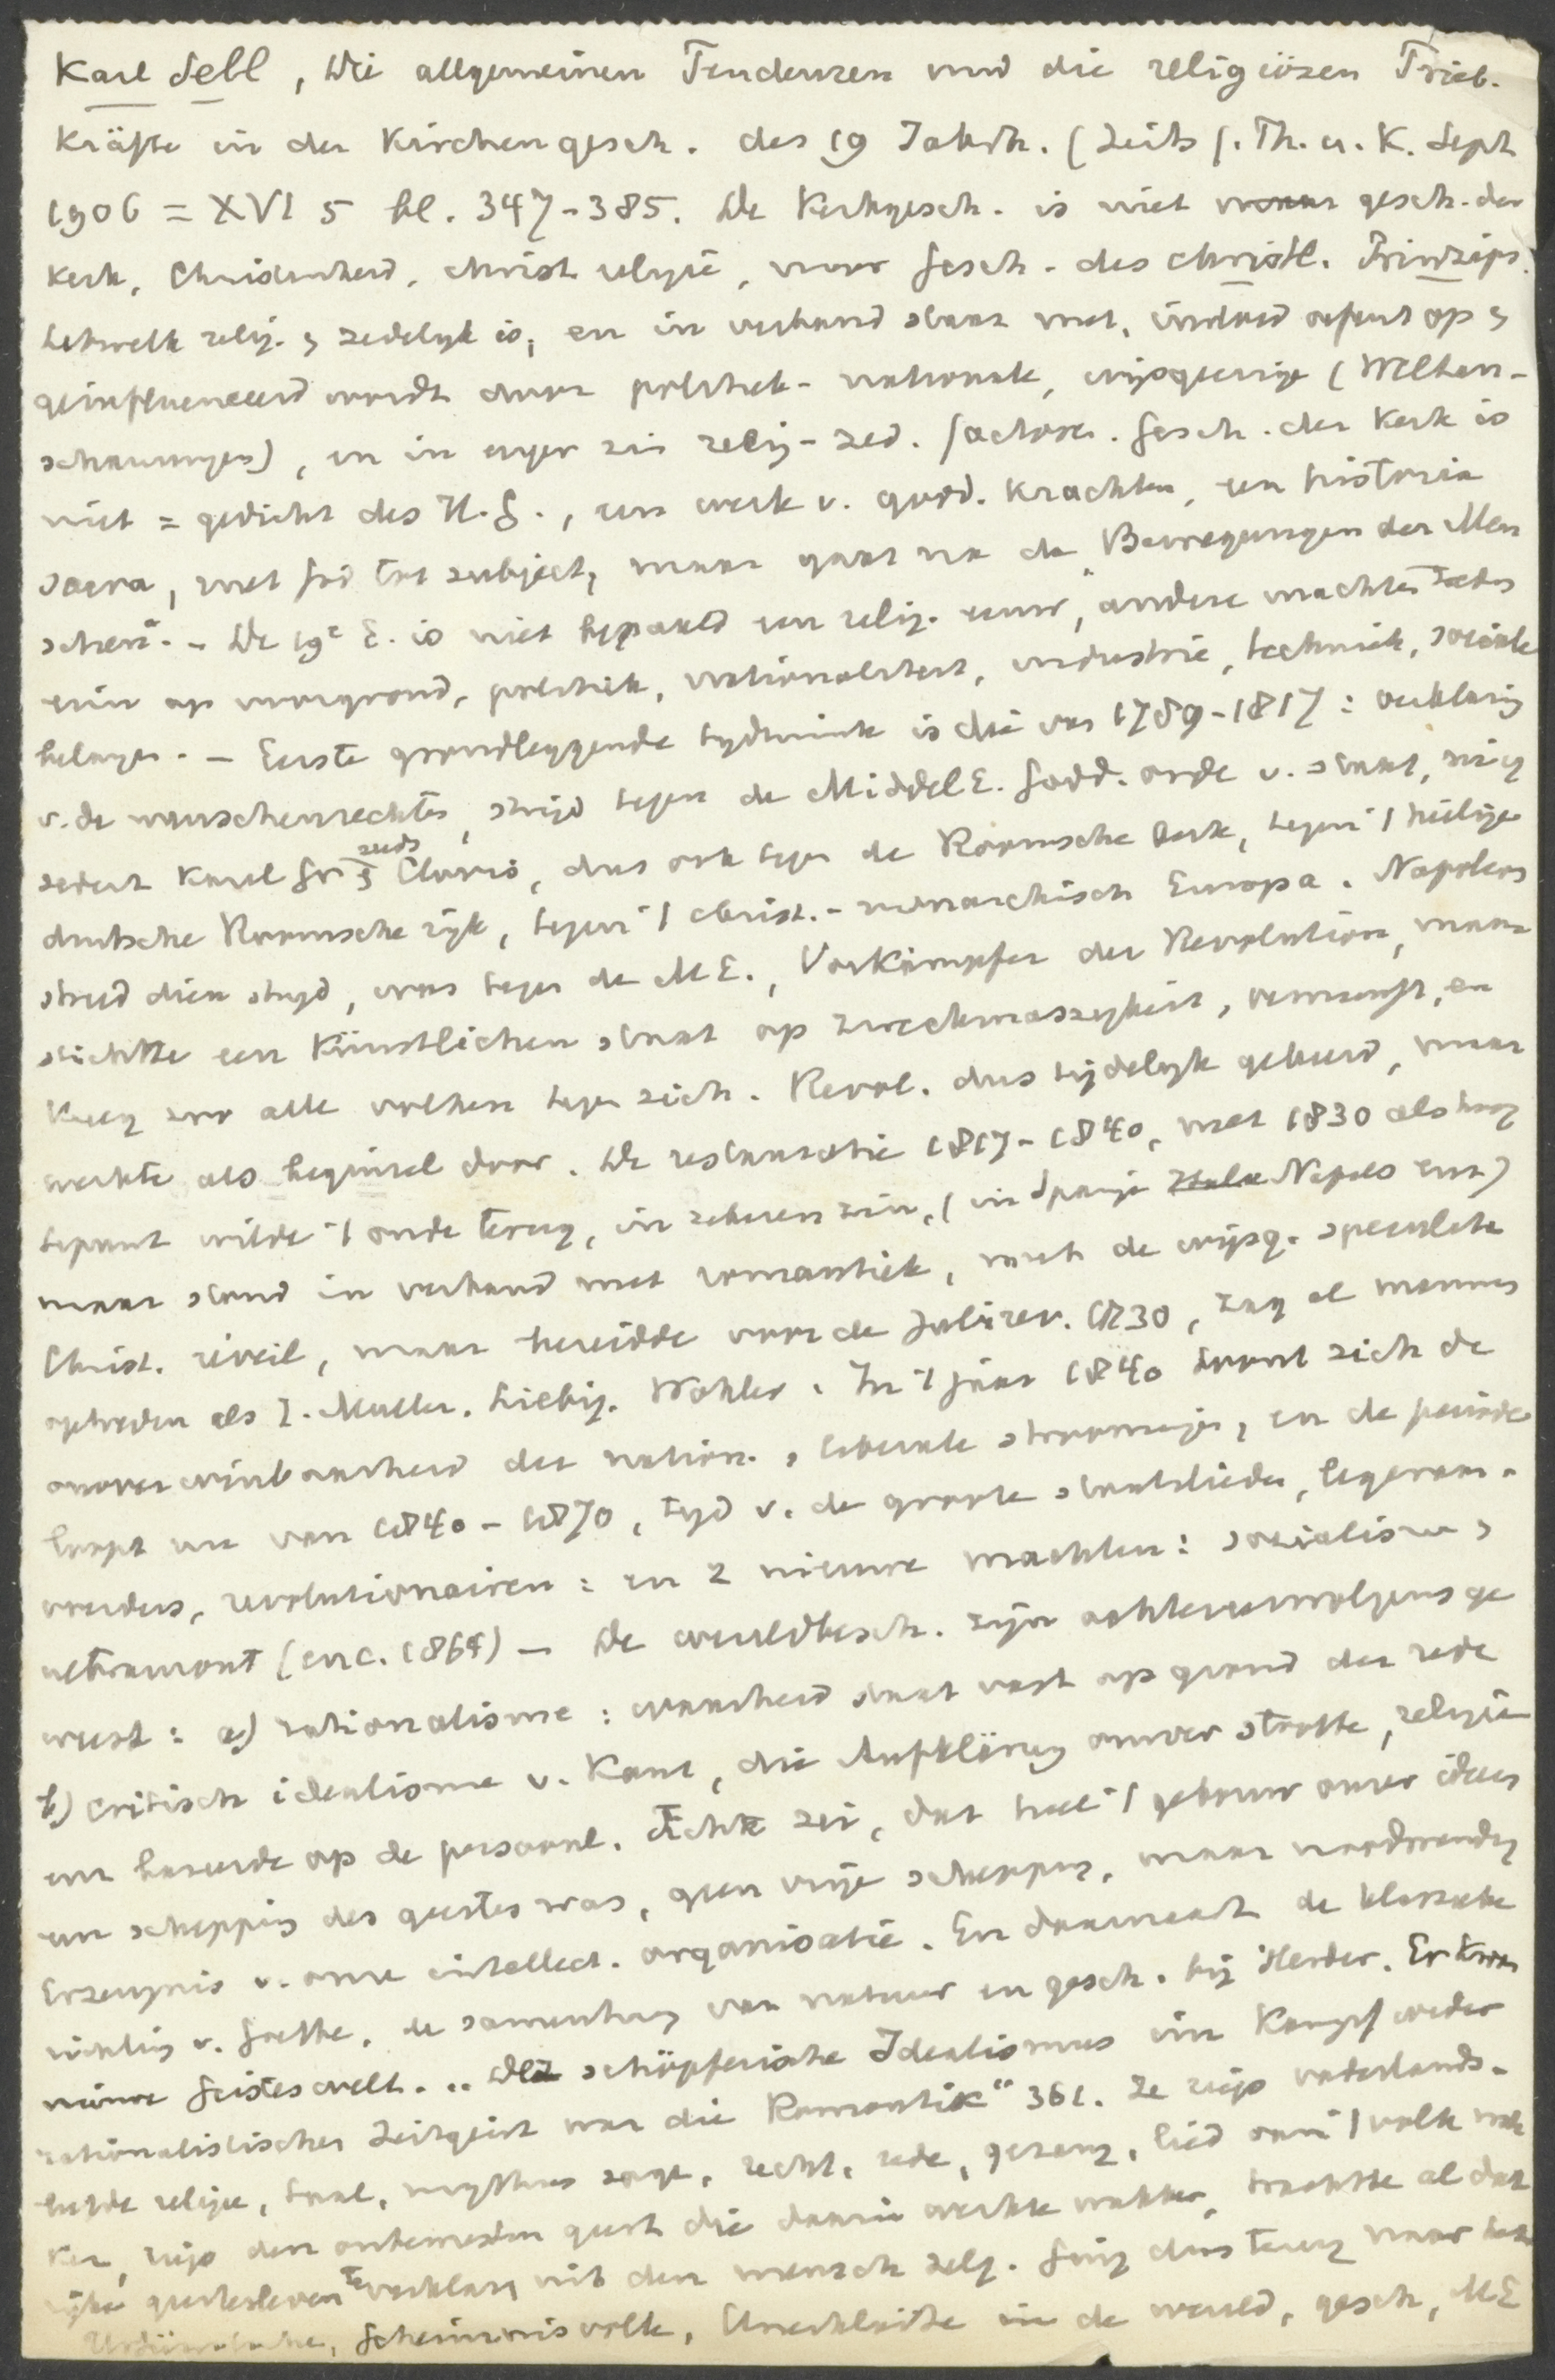 Karl Sell, Die allgemeinen Tendenzen und die religiösen Trieb-
kräfte in der Kirchengesch. des 19 Jahrh. (Zeits f. Th. u. K. Sept
1906 = XVI 5 bl. 347-385. De Kerkgesch. is niet gesch. der
kerk, Christenheid, christ religie, maar Gesch. des christl. Prinzips.
hetwelk relig. & zedelyk is, en in verband staat met, invloed oefent op &
geinfluenceerd wordt door politiek-nationale, wijsgeerige (Weltan-
schauungen), en in enger zin relig-zed. factoren. Gesch. der Kerk is
niet = gedicht des H.G., een werk v. godd. krachten, een historia
sacra, met God tot subject, maar gaat na de "Bewegungen der Men
schen". - De 19e E. is niet bepaald een relig. eeuw, andere machten traden
erin op voorgrond, politiek, nationaliteit, industrie, techniek, sociale
belangen. - Eerste grondleggende tydruimte is die van 1789-1817: verklaring
v. de menschenrechten, strijd tegen de Middel E. Godd. orde v. staat, nig
sedert Karel Gr & Clovis, dus ook tegen de Roomsche kerk, tegen 't heilige
duitsche Roomsche rijk, tegen 't christ.-monarchisch Europa. Napoleon
streed dien stryd, was tegen de M E., Vorkämpfer der Revolution, maar
stichtte een Künstlichen staat op zweckmaszigkeit, vernunft, en
kreeg zoo alle volken tegen zich. Revol. dus tijdelyk gekeerd, maar
werkte als beginsel door. De restauratie 1817-1840, met 1830 als hoog
tepunt wilde 't oude terug, in zekeren zin, (in Spanje Napels enz)
maar stond in verband met romantiek, met de wijsg. speculatie
Christ. réveil, maar bereidde voor de Julirev. 1830, zag al mannen
optreden als J. Muller, Liebig, Wohler. In 't jaar 1840 toont zich de
onoverwinbaarheid der nation. & liberale stroomingen, en de periode
loopt nu van 1840-1870, tyd v. de groote staatslieden, legeraan-
voerders, revolutionairen: en 2 nieuwe machten: socialisme &
ultramont (enc. 1864) - De wereldbesch. zijn achtereenvolgens ge
weest: a) rationalisme: waarheid staat vast op grond der rede
b) critisch idealisme v. Kant, die Aufklärung omver stootte, religie
en baseerde op de persoonl. Fichte zei, dat heel 't gebouw onzer ideen
een schepping des geestes was, geen vrije schepping, maar noodwendig
Erzeugnis v. onze intellect. organisatie. En daarnaast de klassieke
richting v. Goethe, de samenhang van natuur en gesch. bij Herder. Er kwam
nieuwe Geisteswelt. .. "Der schöpferische Idealismus im Kampf wider
rationalistischen Zeitgeist war die Romantik" 361. Ze riep vaderlands-
liefde religie, taal, mythus sage, recht, rede, gezang, lied van 't volk wak
ker, riep den onbewusten geest die daarin werkte wakker, trachtte al dat
rijke geestesleven te verklaren uit den mensch zelf. Ging dus terug naar het
Geheimnisvolle, Unerklärte in de wereld, gesch, ME